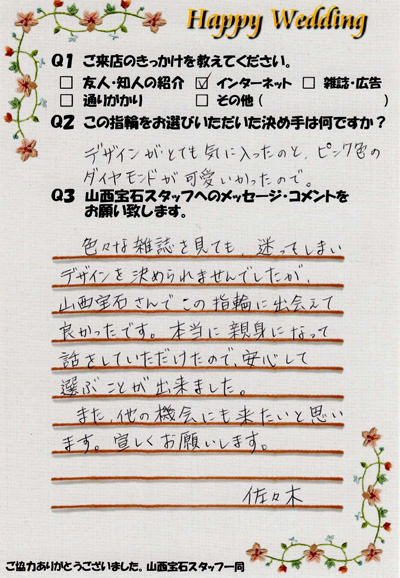 Happy Wedding
Q1 ご来店のきっかけを教えてください。
□ 友人・知人の紹介 ☑ インターネット □ 雑誌・広告
□ 通りがかり □ その他（ ）
Q2 この指輪をお選びいただいた決め手は何ですか？
デザインがとても気に入ったのと、ピンク色の
ダイヤモンドが可愛いかったので。
Q3 山西宝石スタッフへのメッセージ・コメントを
お願い致します。
色々な雑誌を見ても、迷ってしまい
デザインを決められませんでしたが、
山西宝石さんでこの指輪に出会えて
良かったです。本当に親身になって
話をしていただけたので、安心して
選ぶことが出来ました。
また、他の機会にも来たいと思い
ます。宜しくお願いします。
佐々木
ご協力ありがとうございました。山西宝石スタッフ一同